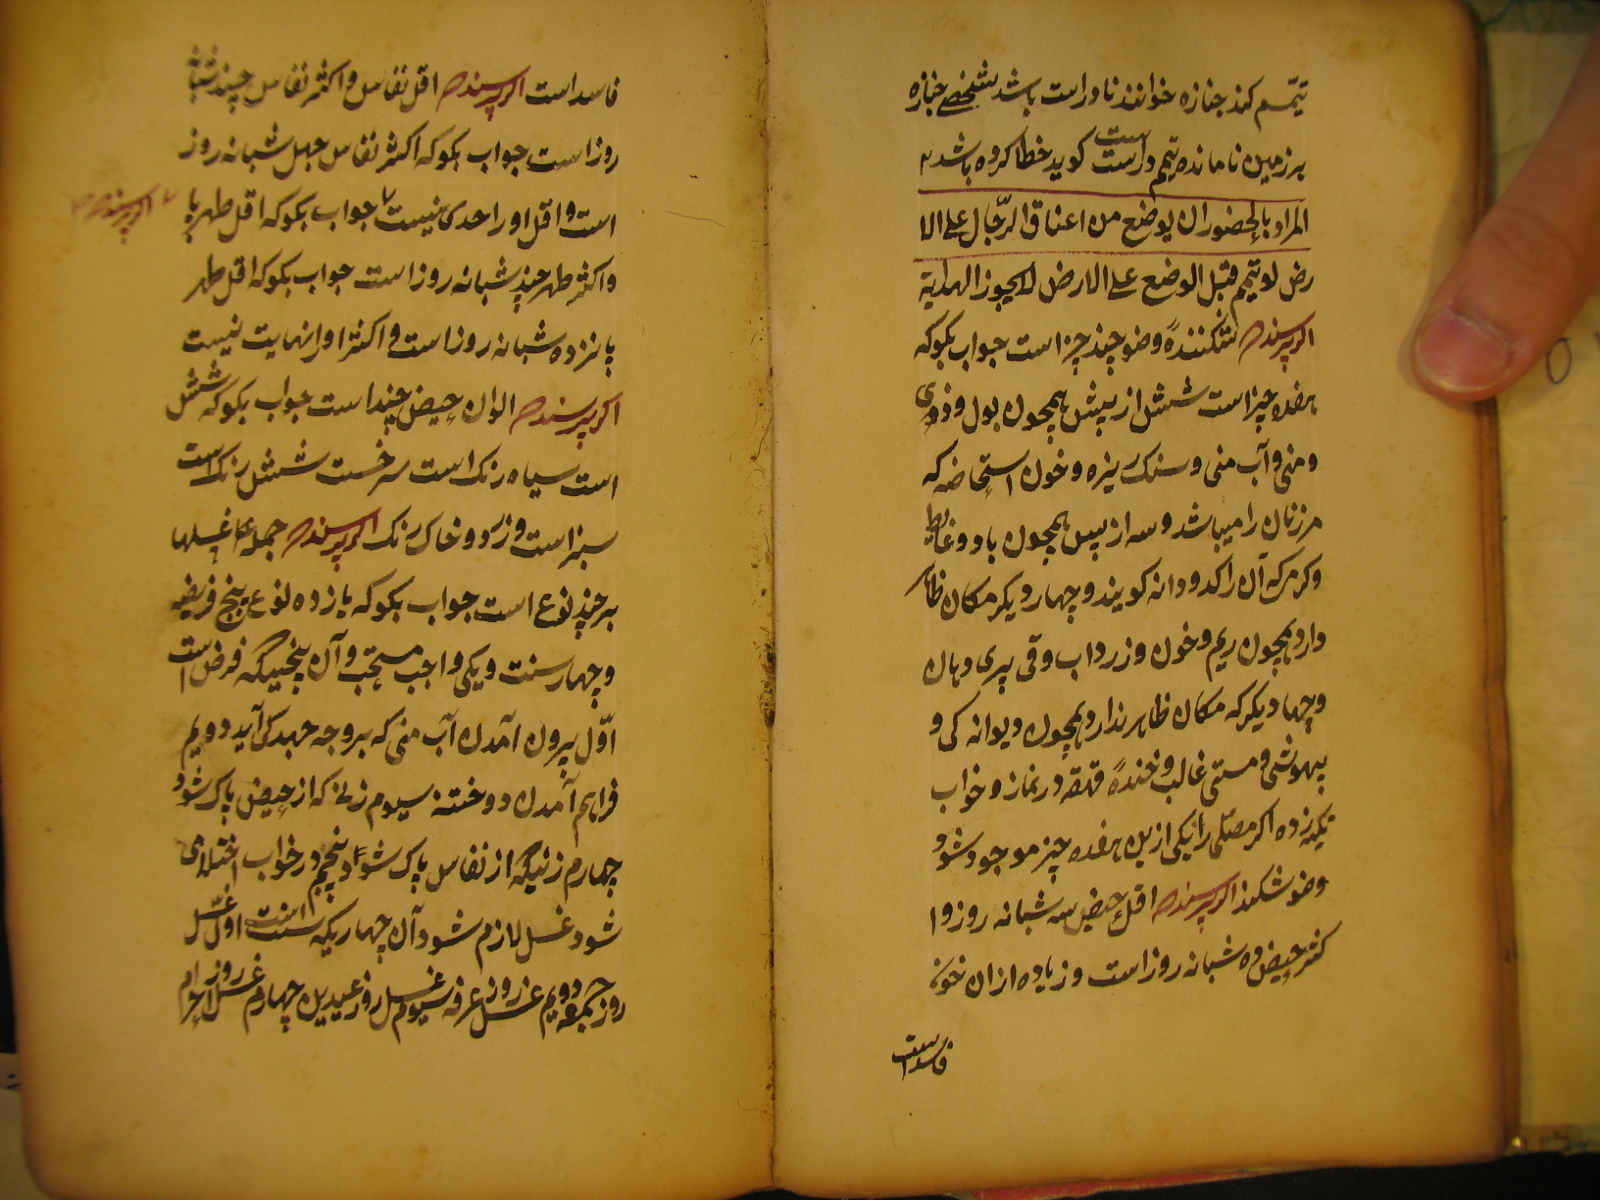 تیمّم کند جنازه خوانند نا دراست باشد شخصے جنازه
بر زمین نا مانده تیمم دراست است کوید خطا کرده باشد
المراد بالحضور ان یوضع من اعناق الرّجال علی الا
رض لو تیمم قبل الوضع علی الارض لا یجوز الهدایة
اکر پرسند شکنندهٔ وضو چند چیز است جواب بکو که
هفده چیز است شش از پیش همچون بول و وذی
و منی و آب منی و سنک ریزه و خون استحاضه که
مر زنان را میباشد و سه از پس همچون باد و غایط
و کرم که آن را کدو دانه کویند و چهار دیکر مکان ظاهر
دارد همچون ریم و خون و زرداب و قی پری دهان
و چهار دیکر که مکان ظاهر ندارد همچون دیوانه کی و
بیهوشی و مستی غالب و خندهٔ قهقه در نماز و خواب
تکیه زده اکر مصلّی را یکی از این هفده چیز موجود شود
وضو شکند اکر پرسند اقل حیض سه شبانه روز و ا
کثر حیض ده شبانه روز است و زیاده ازان خون
فاسد است
فاسد است اکر پرسند اقل نفاس و اکثر نفاس چند شبانه
روز است جواب بکو که اکثر نفاس چهل شبانه روز
است و اقل او را حدی نیست جواب بکو که اقل طهر
اکر پرسند
و اکثر طهر چند شبانه روز است جواب بکو که اقل طهر
پانزده شبانه روز است و اکثر او را نهایت نیست
اکر پرسند الوان حیض چند است جواب بکو که شش
است سیاه رنک است سرخست شش رنک است
سبز است و زرد و خاک رنک اکر پرسند جمله غسلها
بر چند نوع است جواب بکو که یازده نوع پنج فریضه
و چهار سنت و یکی واجب مستحب و آن پنجیکه فرض است
اوّل بیرون آمدن آب منی که بر وجه جهد کی آید دویم
فراهم آمدن دو ختنه سیوم زنی که از حیض پاک شود
چهارم زنیکه از نفاس پاک شود و پنجم در خواب احتلامی
شود غسل لازم شود آن چهاریکه سنت است اول غسل
روز جمعه دویم غسل روز عرفه سیوم غسل روز عیدین چهارم غسل روز احرام